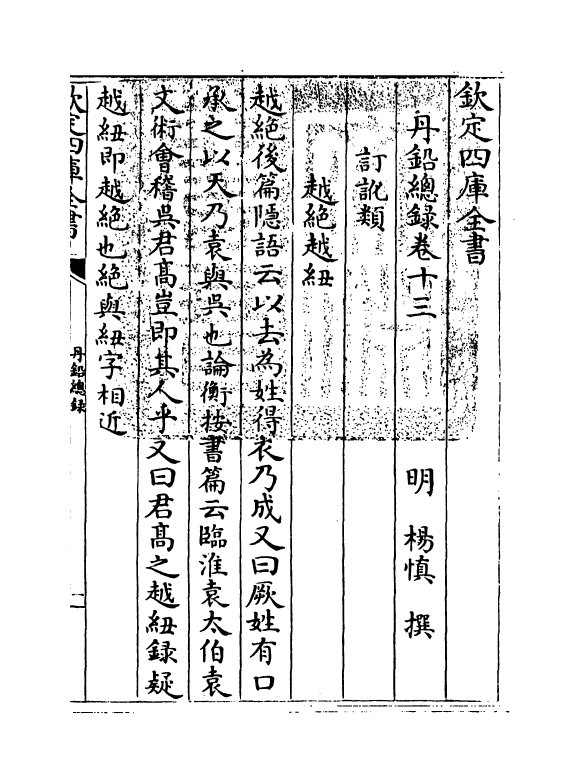 欽定四庫全書
丹鉛總録卷十三
明 楊慎 撰
訂訛類
越絶越紐
越絶後篇隠語云以去為姓得衣乃成又曰厥姓有口
承之以天乃袁與吳也論衡按書篇云臨淮袁太伯袁
文術會稽吳君髙豈即其人乎又曰君髙之越紐録疑
越紐即越絶也絶與紐字相近
欽定四庫全書
丹鉛總録
一